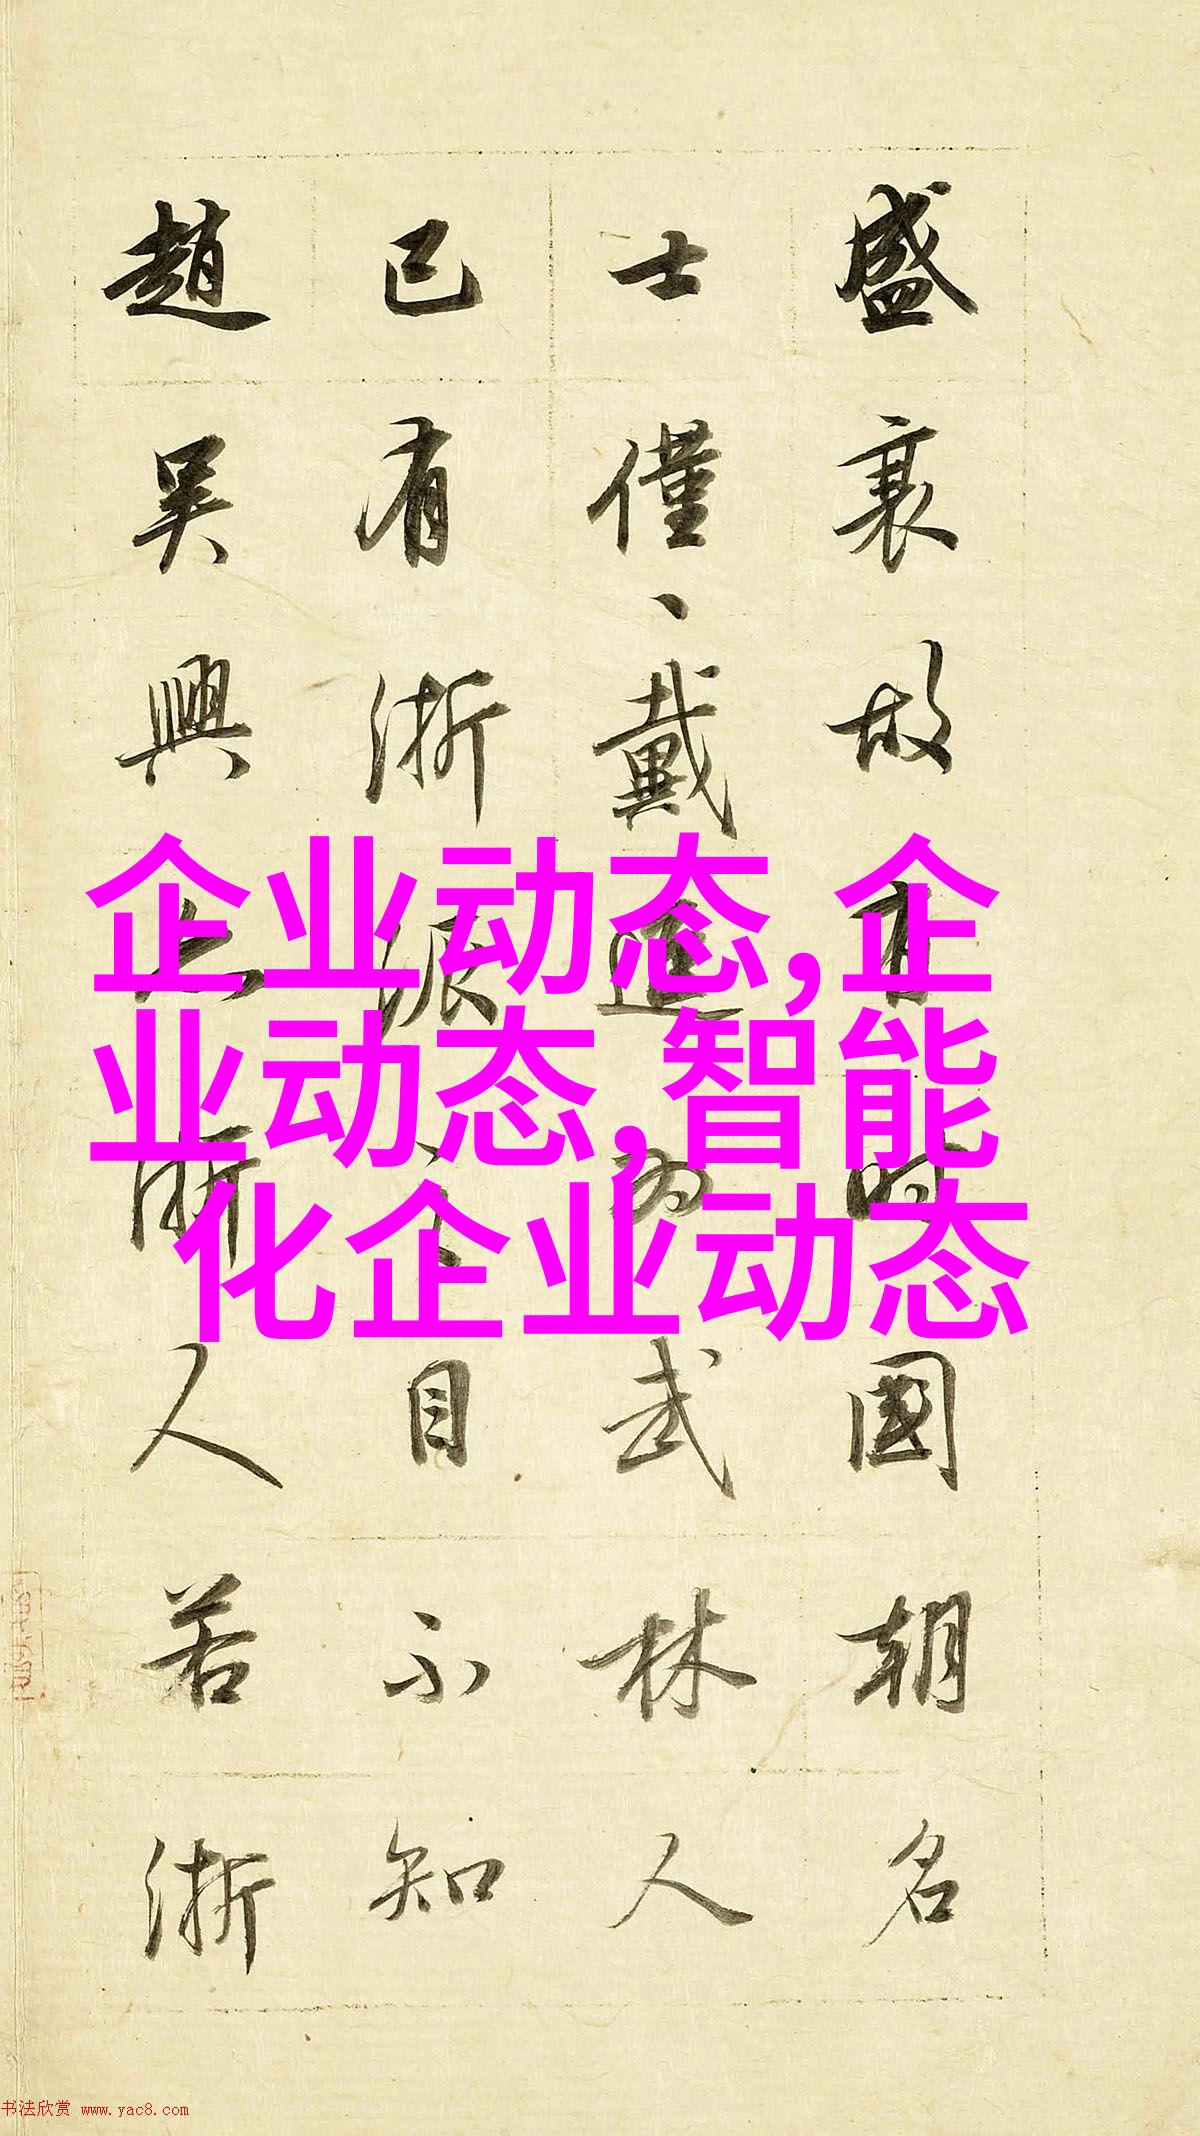 盛衰故有時國朝名
士僅〻戴進為武林人
已有浙派之目不知
趙吴興亦浙人若浙
企业动态,企
业动态,智能
化企业动态
书法欣赏 www.yac8.com